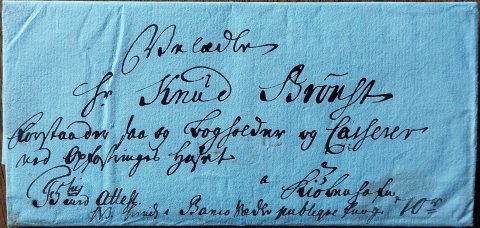 Velædle
Hr Knud Brønst
Forstander saa og Bogholder og Casserer
ved Opfostrings Huset
a Kiøbenhafn
Attest
i Banco Sædler 10